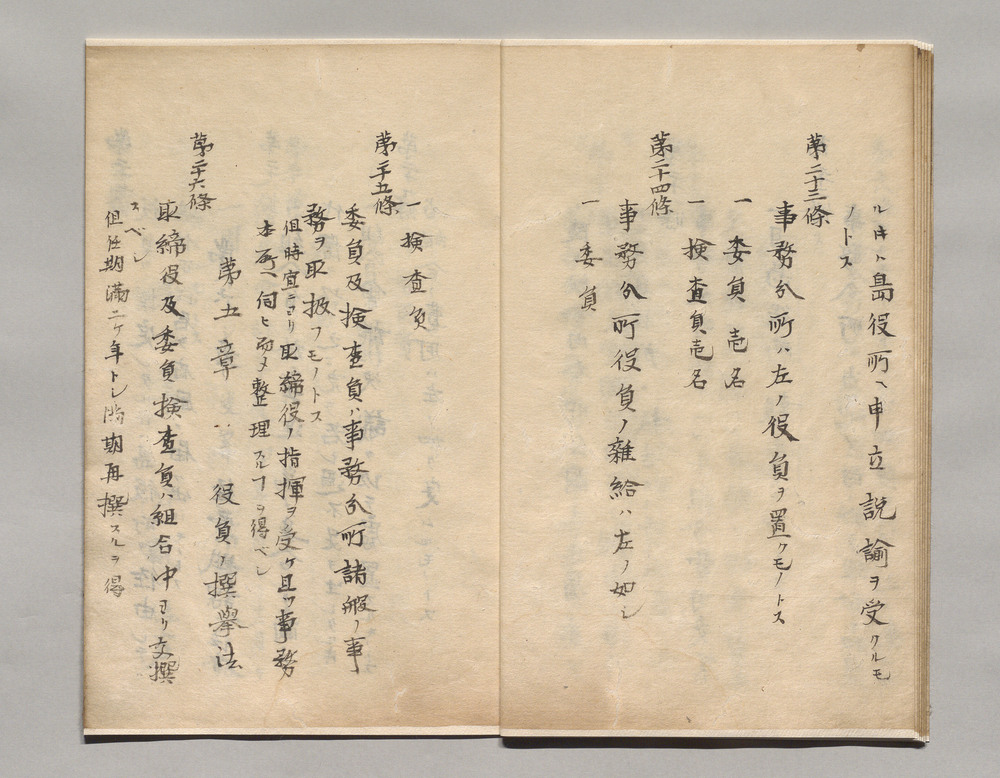 ルトキハ島役所ヘ申立説諭ヲ受クルモ
ノトス
第二十三條
事務分所ハ左ノ役員ヲ置クモノトス
一 委員 壱名
一 検査員壱名
第二十四條
事務分所役員ノ雑給ハ左ノ如シ
一 委員
一 検査員
第二十五條
委員及検査員ハ事務分所諸般ノ事
務ヲ取扱フモノトス
但時宜ニヨリ取締役ノ指揮ヲ受ケ且ツ事務
本所ヘ伺ヒ而メ整理スルヿヲ得ベシ
第五章 役員ノ撰挙法
第二十六條
取締役及委員検査員ハ組合中ヨリ公撰
スベシ
但任期満二ケ年トシ満期再撰スルヲ得